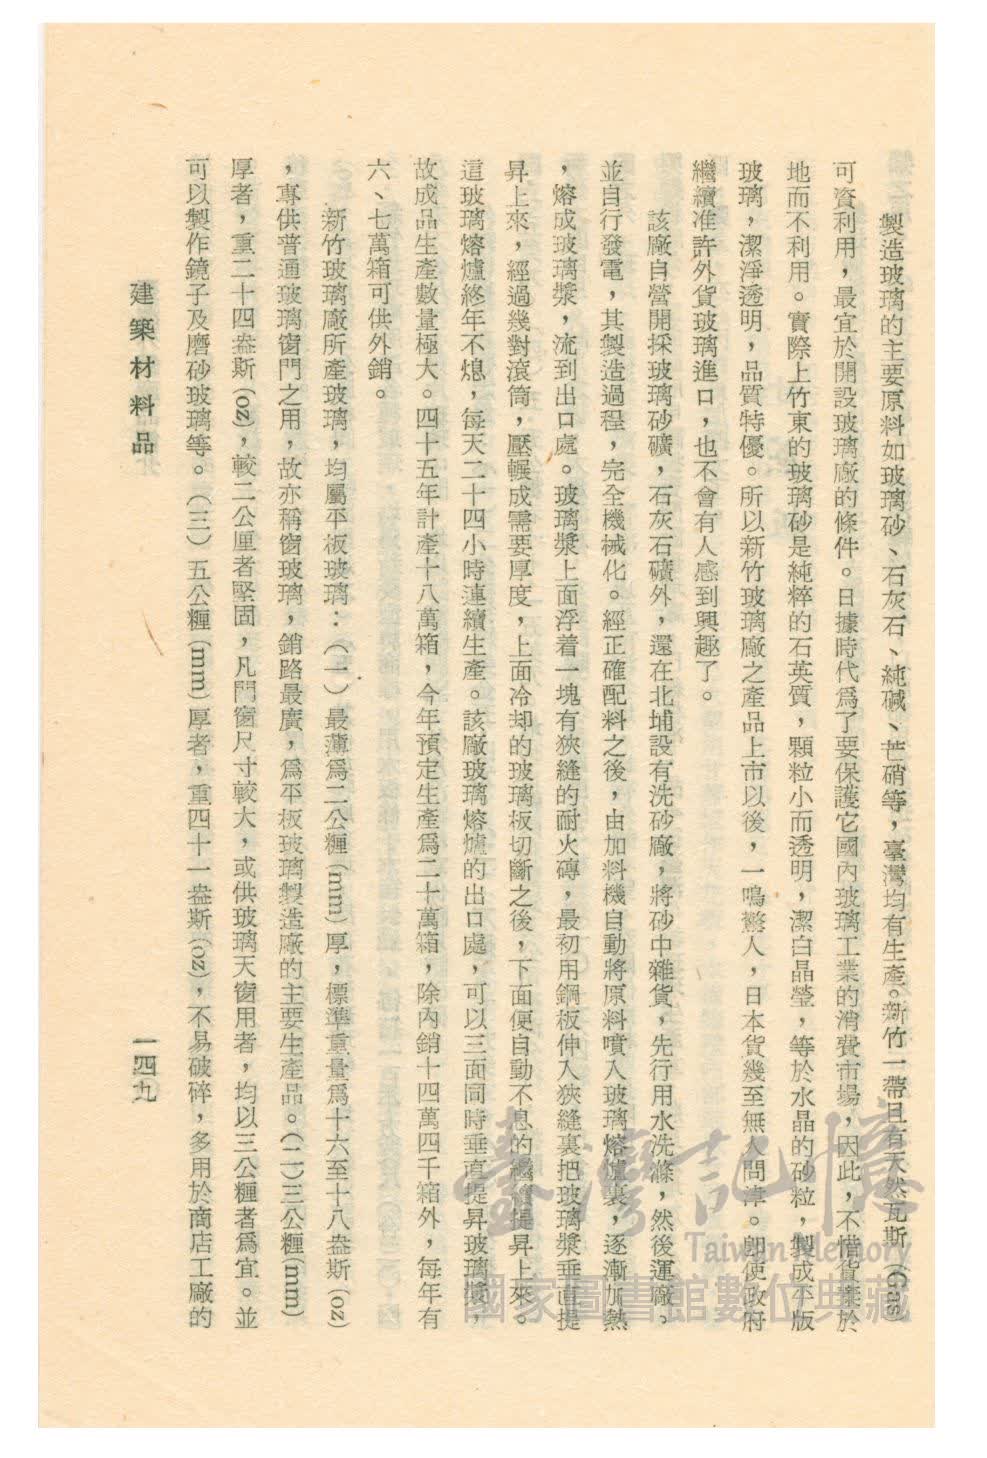 製造玻璃的主要原料如玻璃砂、石灰石、純碱、芒硝等，臺灣均有生產。新竹一帶且有天然瓦斯 (Gas)
可資利用，最宜於開設玻璃廠的條件。日據時代爲了要保護它國內玻璃工業的消費市場，因此，不惜貨棄於
地而不利用。實際上竹東的玻璃砂是純粹的石英質，顆粒小而透明，潔白晶瑩，等於水晶的砂粒，製成平版
玻璃，潔淨透明，品質特優。所以新竹玻璃廠之產品上市以後，一鳴驚人，日本貨幾至無人問津。卽使政府
繼續准許外貨玻璃進口，也不會有人感到興趣了。
該廠自營開採玻璃砂礦，石灰石礦外，還在北埔設有洗砂廠，將砂中雜貨，先行用水洗滌，然後運廠。
並自行發電，其製造過程，完全機械化。經正確配料之後，由加料機自動將原料噴入玻璃熔爐裏，逐漸加熱
，熔成玻璃漿，流到出口處。玻璃漿上面浮着一塊有狹縫的耐火磚，最初用鋼板伸入狹縫裏把玻璃漿垂直提
昇上來，經過幾對滾筒，壓輾成需要厚度，上面冷却的玻璃板切斷之後，下面便自動不息的繼續提昇上來。
這玻璃熔爐終年不熄，每天二十四小時連續生產。該廠玻璃熔爐的出口處，可以三面同時垂直提昇玻璃漿，
故成品生產數量極大。四十五年計產十八萬箱，今年預定生產爲二十萬箱，除內銷十四萬四千箱外，每年有
六、七萬箱可供外銷。
新竹玻璃廠所產玻璃，均屬平板玻璃：（一）最薄爲二公糎(mm)厚，標準重量爲十六至十八盎斯(oz)
，專供普通玻璃窗門之用，故亦稱窗玻璃，銷路最廣，爲平板玻璃製造廠的主要生產品。（二）三公糎(mm)
厚者，重二十四盎斯(oz)，較二公厘者堅固，凡門窗尺寸較大，或供玻璃天窗用者，均以三公糎者爲宜。並
可以製作鏡子及磨砂玻璃等。（三）五公糎(mm)厚者，重四十一盎斯(oz)，不易破碎，多用於商店工廠的
建築材料品
一四九
臺灣記憶
Taiwan Memory
國家圖書館數位典藏